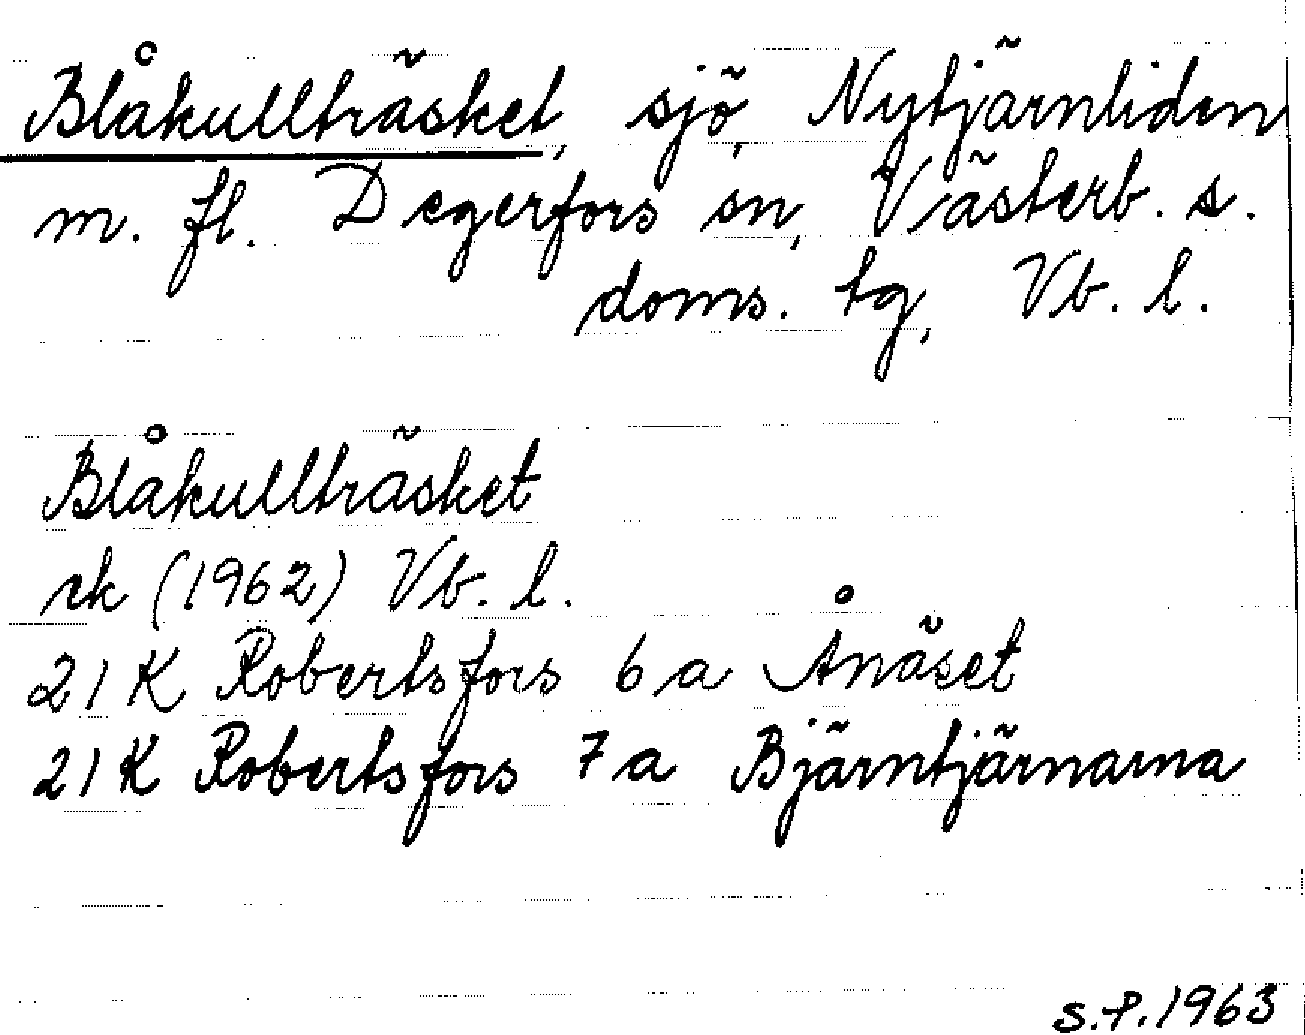 Blåkullträsket, sjö, Nytjärnliden
m. fl. Degerfors sn, Västerb. s.
doms. tg, Vb. l.
Blåkullträsket
rk (1962) Vb. l.
21 K Robertsfors 6 a Ånäset
21 K Robertsfors 7 a Bjärntjärnarna
S.P. 1963